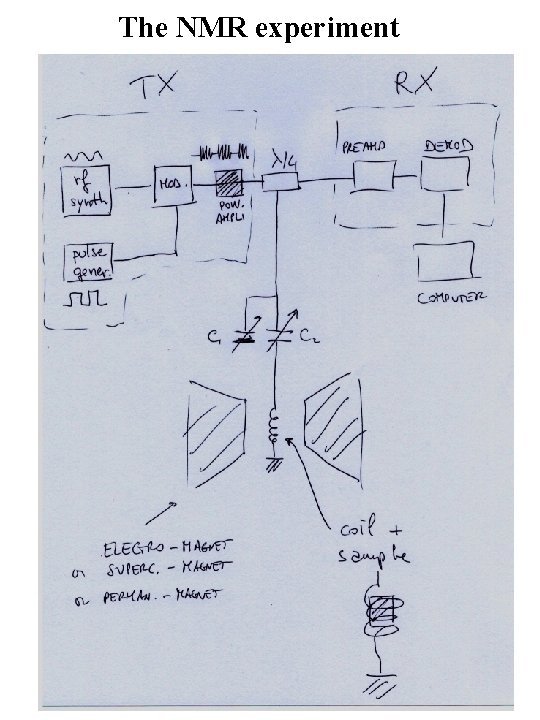 The NMR experiment
TX
RX
rf
synth
MOD.
POW.
AMPLI
λ/4
PREAMP
DEMOD
pulse
gener.
COMPUTER
C1
C2
ELECTRO-MAGNET
or SUPERC. - MAGNET
or PERMAN. - MAGNET
coil +
sample